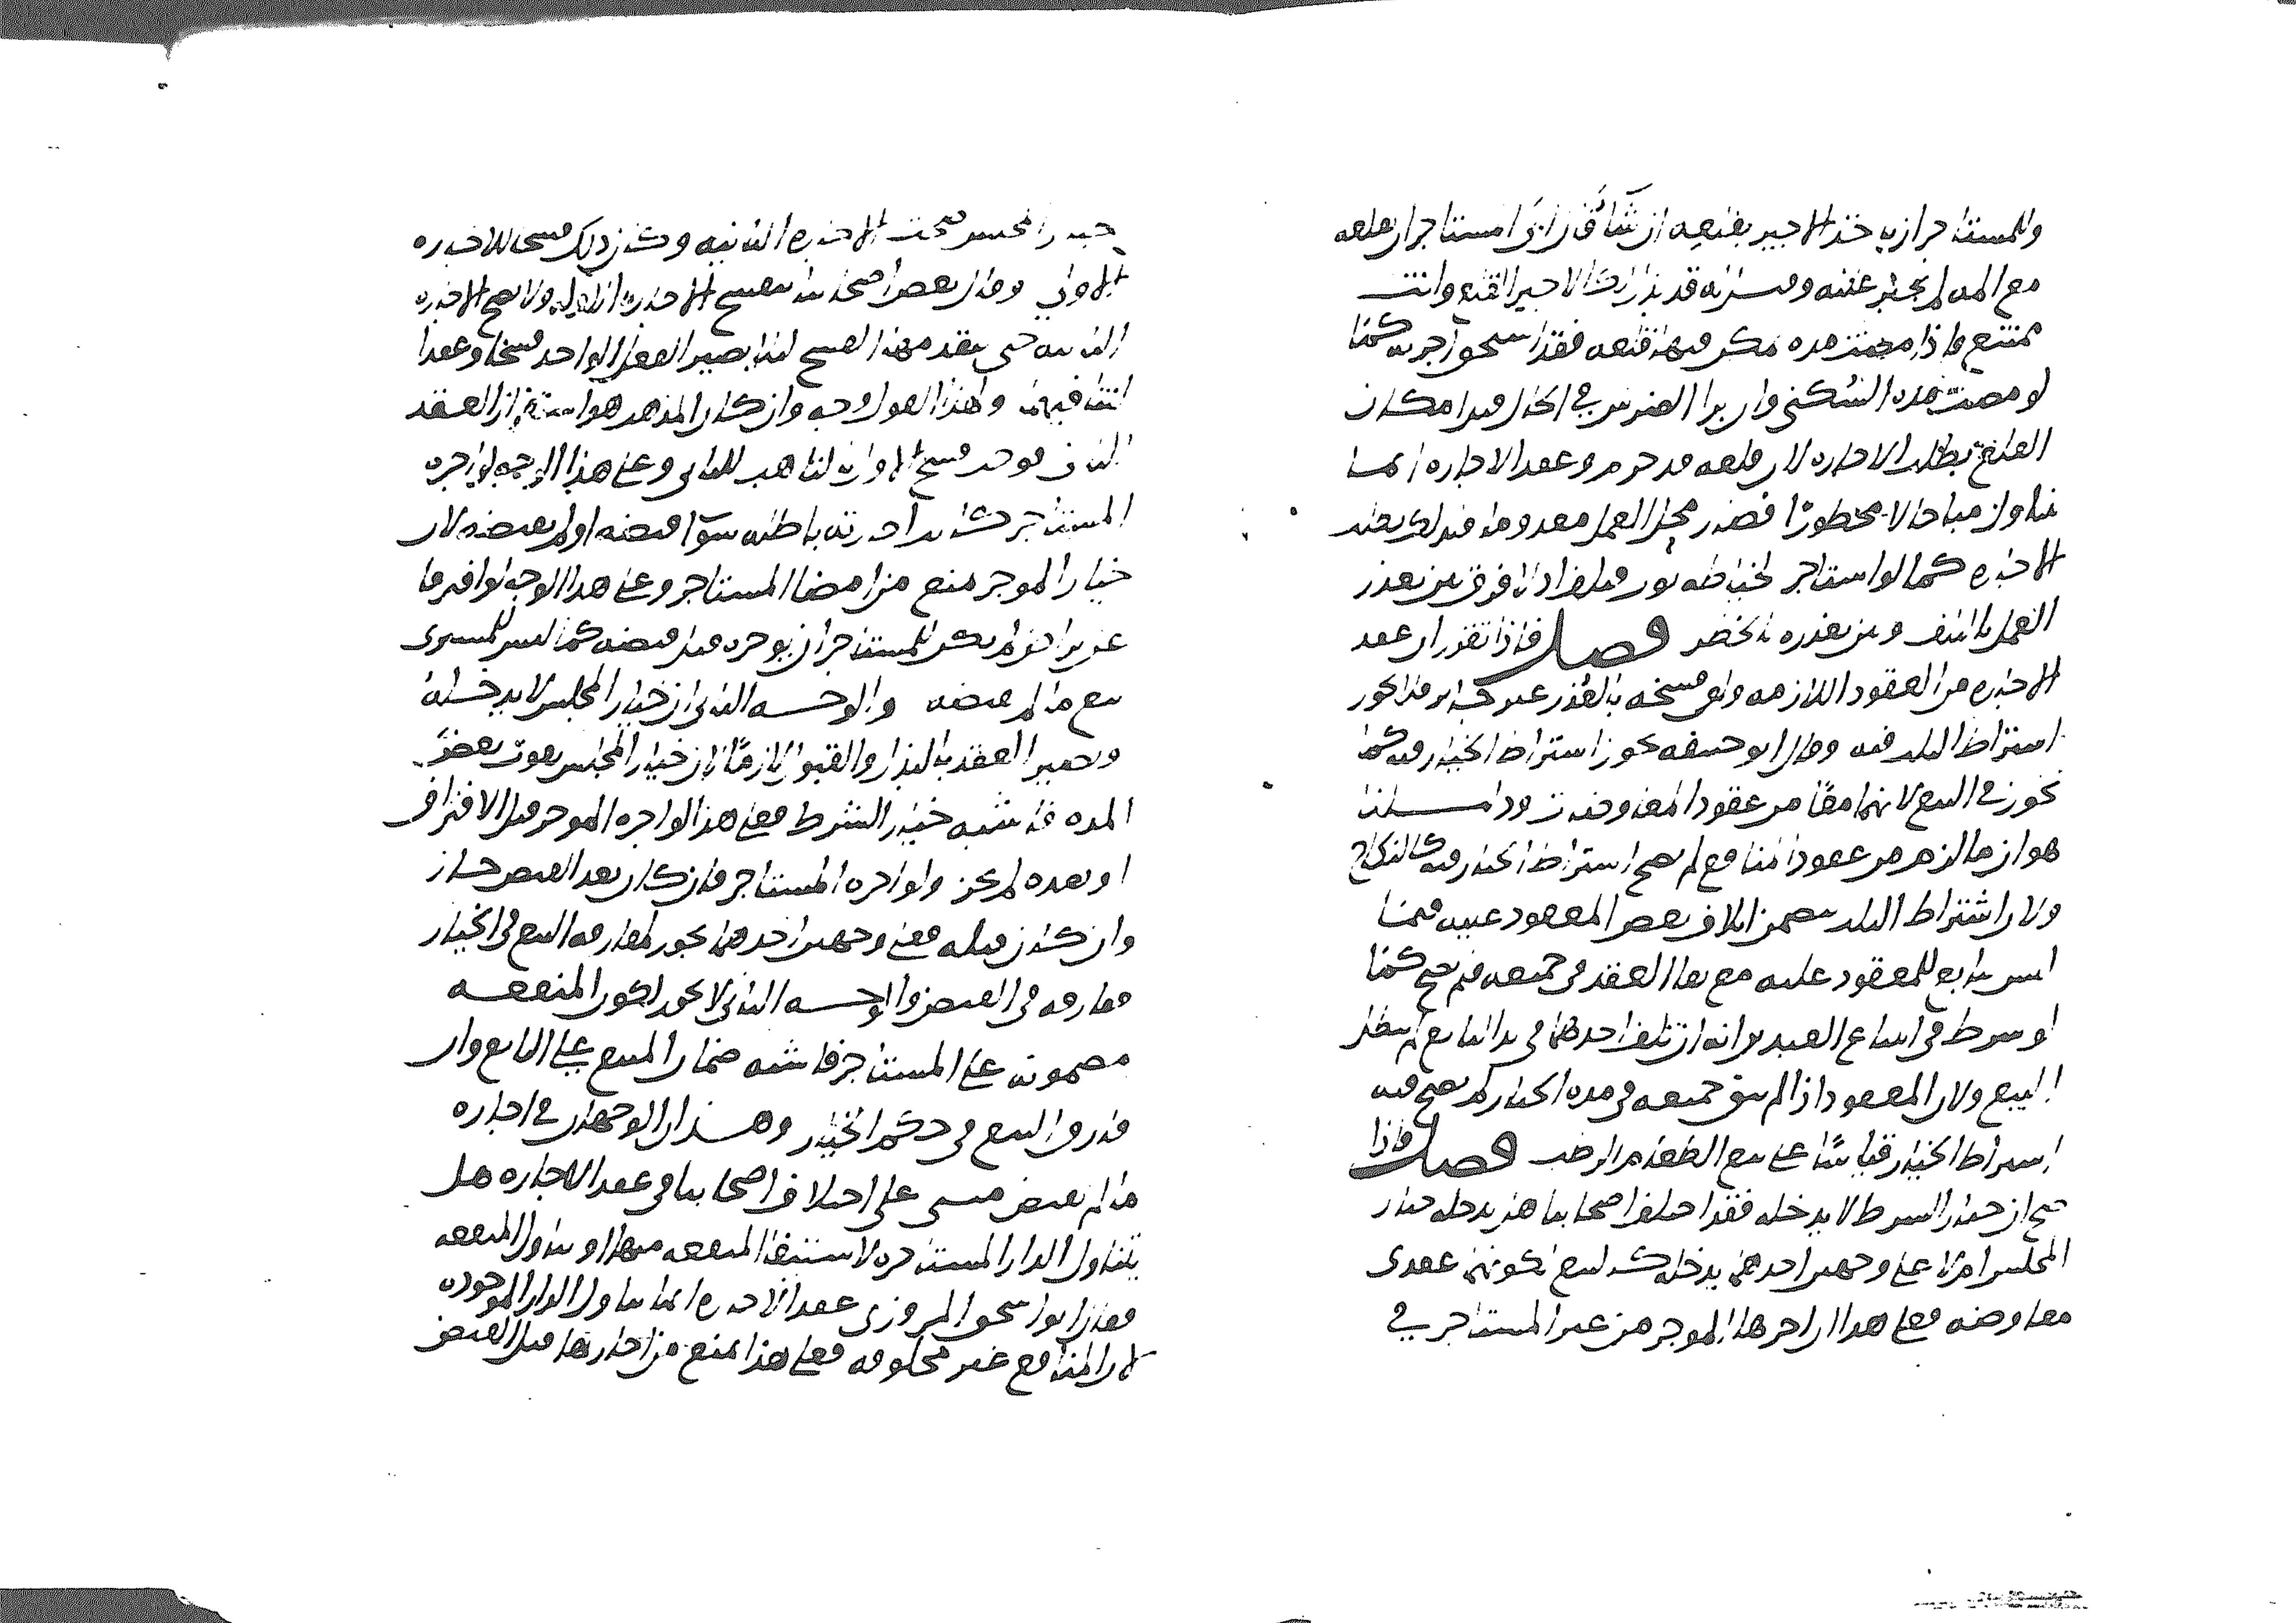 وللمستاجر ان ياخذ الاجير بقلعه ان شا فان ابى المستاجر ان يقلعه
مع الم لم يجبر عليه وقيل له قد بذل لك الاجير القلع وانت
ممتنع فاذا مضت مده يمكن فيها قلعه فقد استحق اجرته كما
لو مضت مده السكنى وان برا الضرس في الحال قبل امكان
القلع بطلت الاجاره لان قلعه قد حرم وعقد الاجاره انما
تناول مباحا لا محظورا فصار محل العمل معدوما فلذلك بطلت
الاجاره كما لو استاجره لخياطه ثوب فتلف اذ لا فرق بين تعذر
العمل بالتلف وبين تعذره بالحظر فصل فاذا تقرر ان عقد
الاجاره من العقود اللازمه وان فسخه بالعذر غير جايز فلا يجوز
اشتراط الثلث فيه وقال ابو حنيفه يجوز اشتراط الخيار فيه كما
يجوز في البيع لانهما معا من عقود المعاوضات ودليلنا
هو ان ما لزم من عقود المنافع لم يصح اشتراط الخيار فيه كالنكاح
ولان اشتراط الثلث يتضمن اتلاف بعض المعقود عليه فيما
ليس بتابع للمعقود عليه مع بقا العقد في جميعه فلم يصح كما
لو شرط في ابتياع العبدين انه ان تلف احدهما في يد البايع لم يبطل
البيع ولان المعقود اذا لم يبق جميعه في مده الخيار لم يصح فيه
اشتراط الخيار قياسا على بيع الطعام الرطب فصل فاذا
صح ان خيار الشرط لا يدخله فقد اختلف اصحابنا هل يدخله خيار
المجلس ام لا على وجهين احدهما يدخله كالبيع لكونهما عقدي
معاوضه فعلى هذا ان اجرها الموجر من غير المستاجر في
خيار المجلس صحت الاجاره الثانيه وكان ذلك فسخا للاجاره
الاولى وقال بعض اصحابنا تنفسخ الاجاره الاوله ولا تصح الاجاره
الثانيه حتى يتقدمها الفسخ ليلا يصير الفعل الواحد فسخا وعقدا
لتنافيهما ولهذا القول وجه وان كان المذهب هو استقرار العقد
الثاني فوجد فسخ الاول لتاهب للثاني وعلى هذا الوجه لو اجره
المستاجر كانت اجارته باطله سوا قبضه او لم يقبضه لان
خيار الموجر منع من امضا المستاجر وعلى هذا الوجه لو افترقا
عن تراض لم يكن للمستاجر ان يوجره قبل قبضه كما ليس للمشتري
بيع ما لم يقبضه والوجه الثاني ان خيار المجلس لا يدخله
ويصير العقد بالبذل والقبول لازما لان خيار المجلس يفوت بعض
المده فاشبه خيار الشرط فعلى هذا لو اجره الموجر قبل الافتراق
او بعده لم يجز ولو اجره المستاجر فان كان بعد القبض جاز
وان كان قبله فعلى وجهين احدهما يجوز لمفارقه البيع في الخيار
ففارقه في القبض والوجه الثاني لا يجوز لكون المنفعه
مضمونه على المستاجر فاشبه ضمان المبيع على البايع وان
فارق البيع في حكم الخيار وهذان الوجهان في اجاره
ما لم يقبض مبني على اختلاف اصحابنا في عقد الاجاره هل
يتناول الدار المستاجره لاستيفا المنفعه منها او يتناول المنفعه
فقال ابو اسحق المروزي عقد الاجاره انما يتناول الدار الموجوده
لان المنافع غير مخلوقه فعلى هذا يمنع من اجارتها قبل القبض